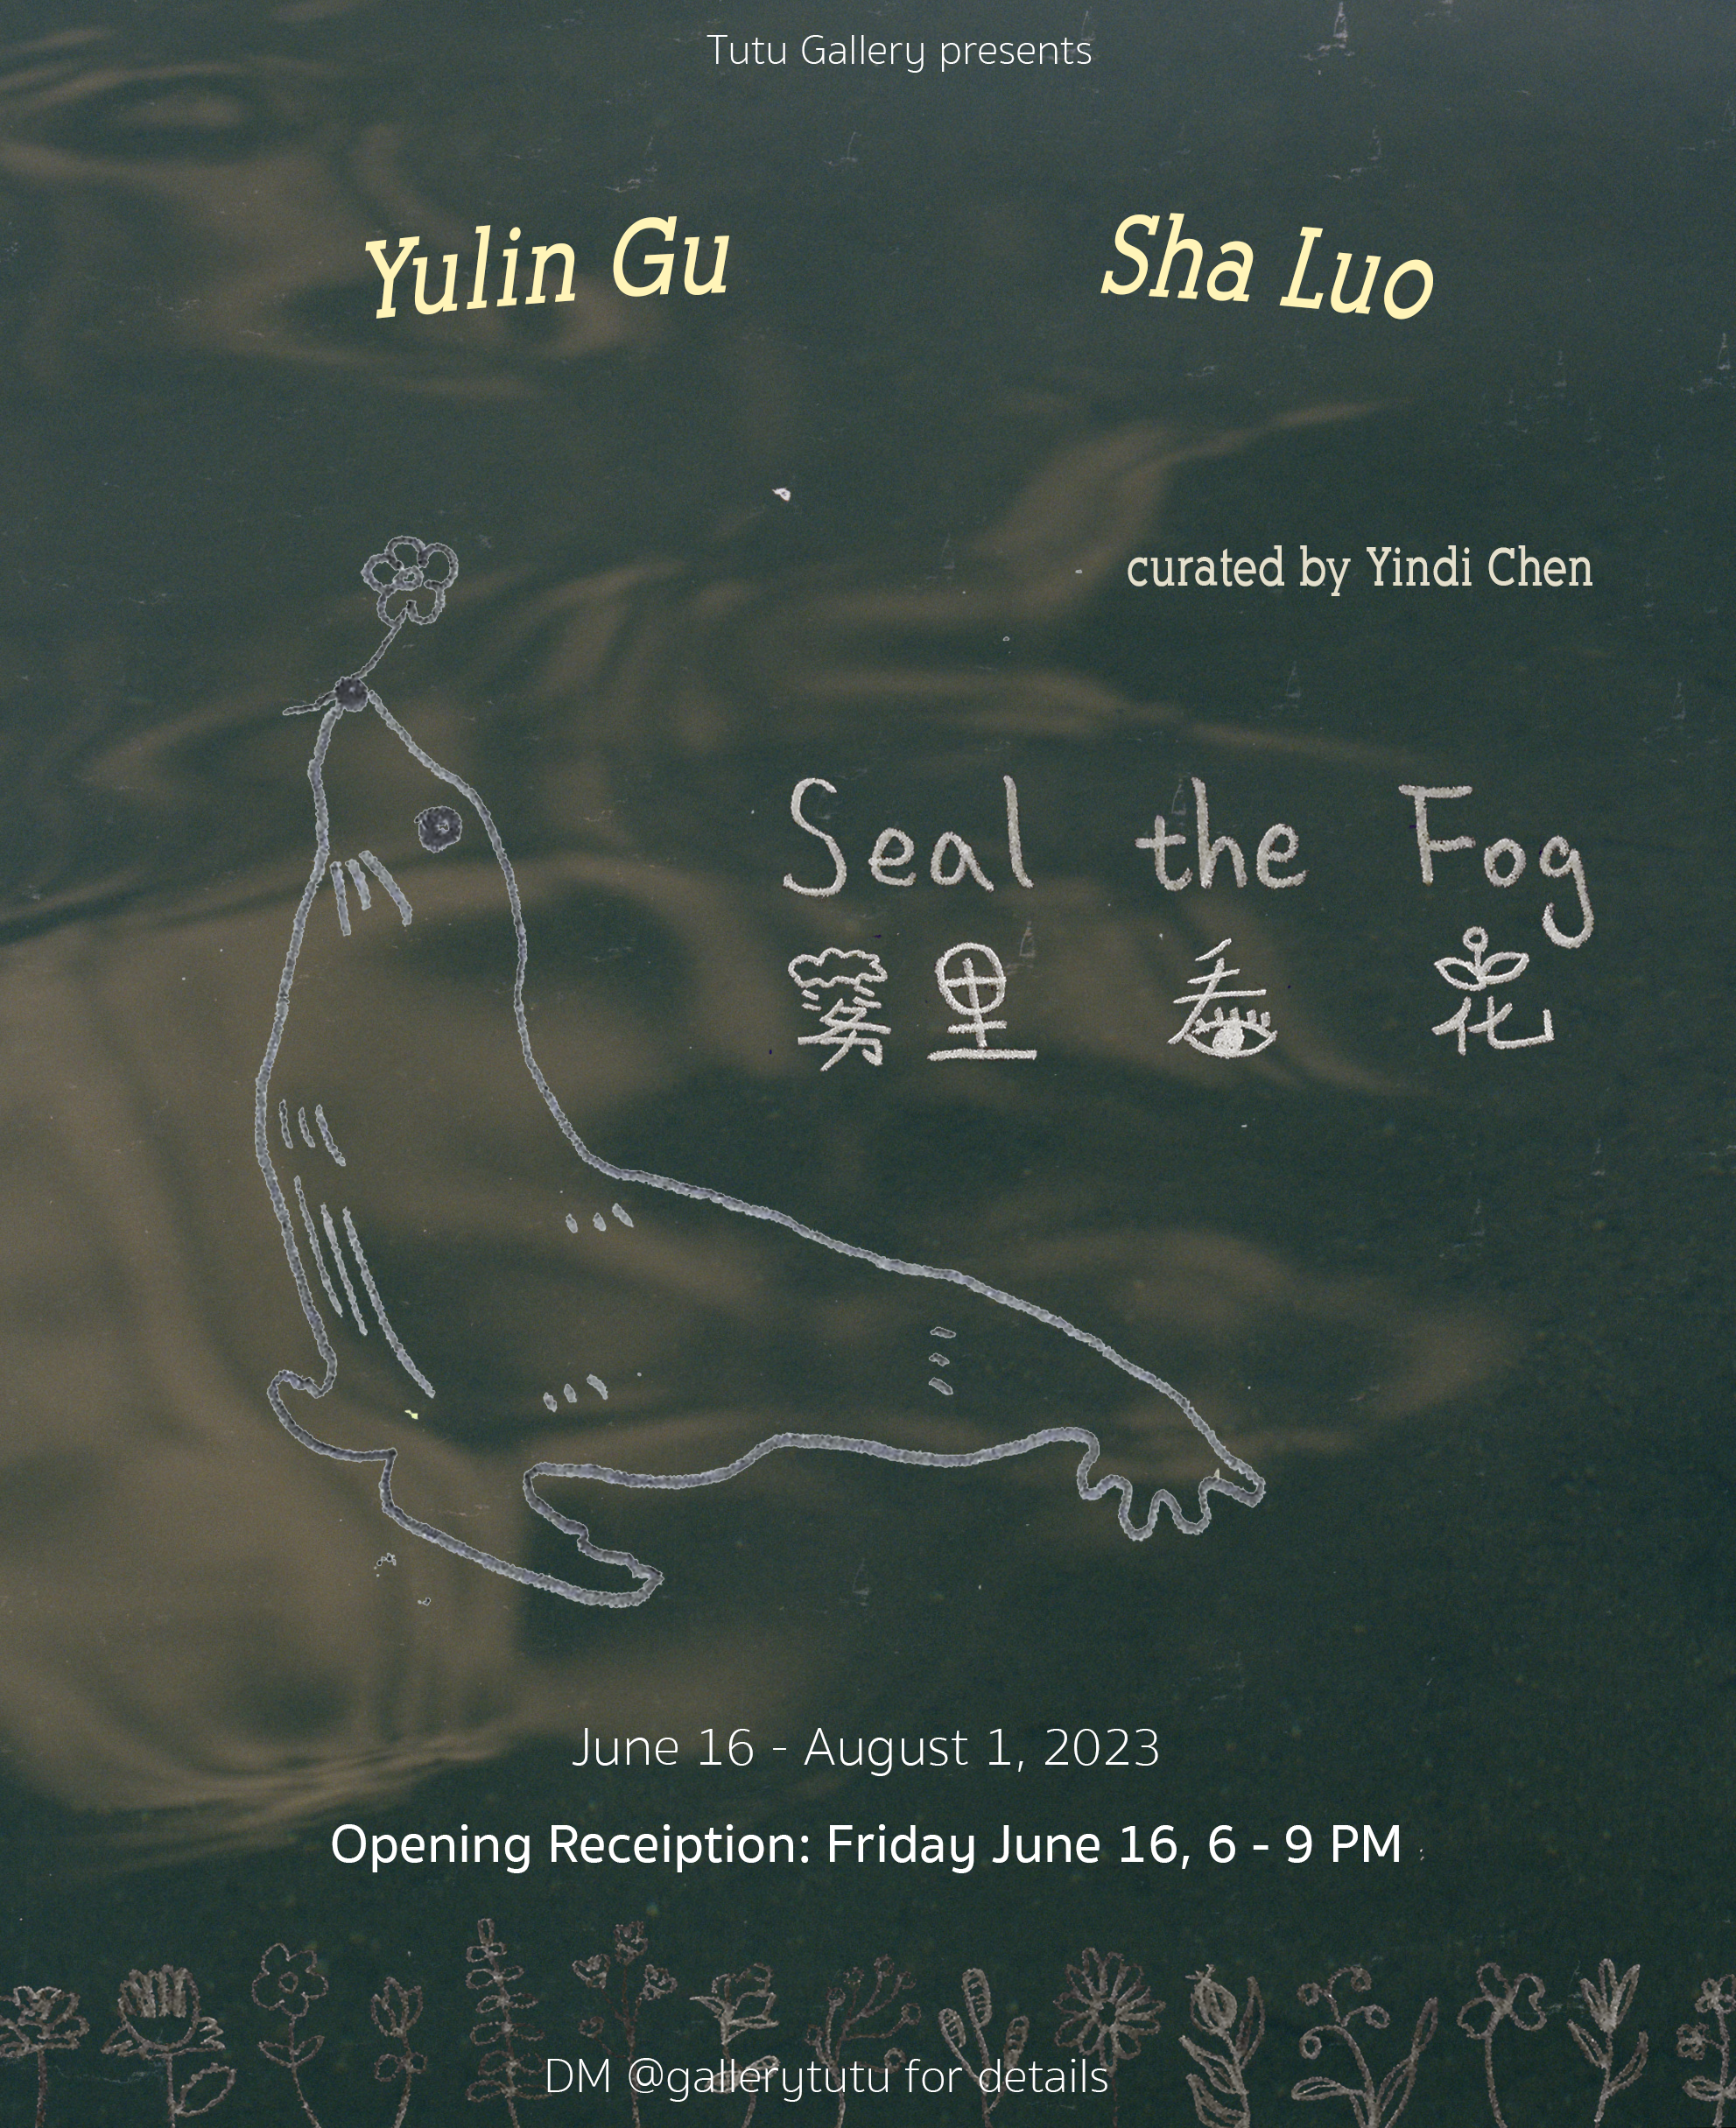 Tutu Gallery presents
Yulin Gu
Sha Luo
curated by Yindi Chen
Seal the Fog
雾里看花
June 16 - August 1, 2023
Opening Receiption: Friday June 16, 6 - 9 PM
DM @gallerytutu for details